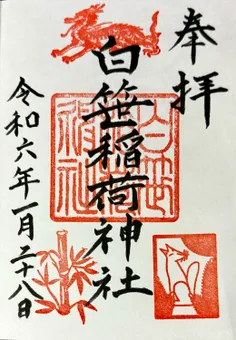 奉拝
白笹稲荷神社
令和六年一月二十八日